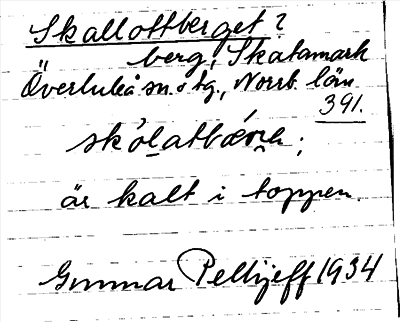 Skallottberget?
berg, Skatamark
Överluleå sn. o tg., Norrb. län
391.
är kalt i toppen.
Gunnar Pellijeff 1934